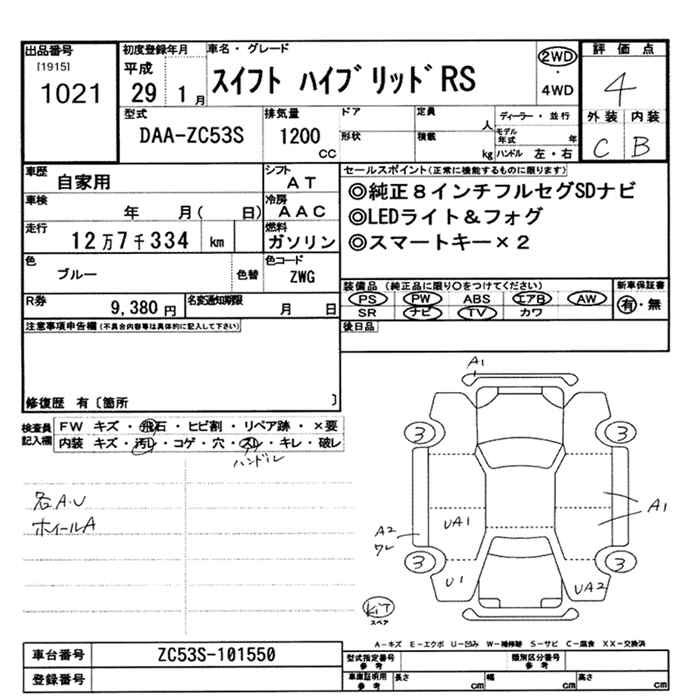 出品番号
[1915]
1021
初度登録年月
平成
29 1月
車名・グレード
スイフト ハイブリッドRS
2WD
・
4WD
評価点
4
外装 内装
C B
型式
DAA-ZC53S
排気量
1200
CC
ドア
形状
定員
人
積載
kg
ディーラー・並行
モデル
年式 年
ハンドル 左・右
車歴
自家用
シフト
AT
車検
年 月( 日)
冷房
AAC
走行
12万7千334 km
燃料
ガソリン
色
ブルー
色替
色コード
ZWG
R券
9,380円
名変通知期限
月 日
セールスポイント(正常に機能するものに限ります)
◎純正8インチフルセグSDナビ
◎LEDライト&フォグ
◎スマートキー×2
装備品(純正品に限り○をつけてください)
PS PW ABS エアB AW
SR ナビ TV カワ
新車保証書
有・無
後日品
注意事項申告欄(不具合内容等は具体的に記入して下さい)
修復歴 有〔箇所 〕
検査員
記入欄
FW キズ・飛石・ヒビ割・リペア跡・×要
内装 キズ・汚レ・コゲ・穴・スレ・キレ・破レ
ハンドル
各A.U
ホイールA
A1
3
3
UA1
A1
A2
ワレ
3
3
U1
UA2
KIT
スペア
A-キズ E-エクボ U-凹み W-補修跡 S-サビ C-腐食 XX-交換済
車台番号
ZC53S-101550
登録番号
型式指定番号
参考
類別区分番号
参考
車庫証明用
参考
長さ cm
幅 cm
高さ cm